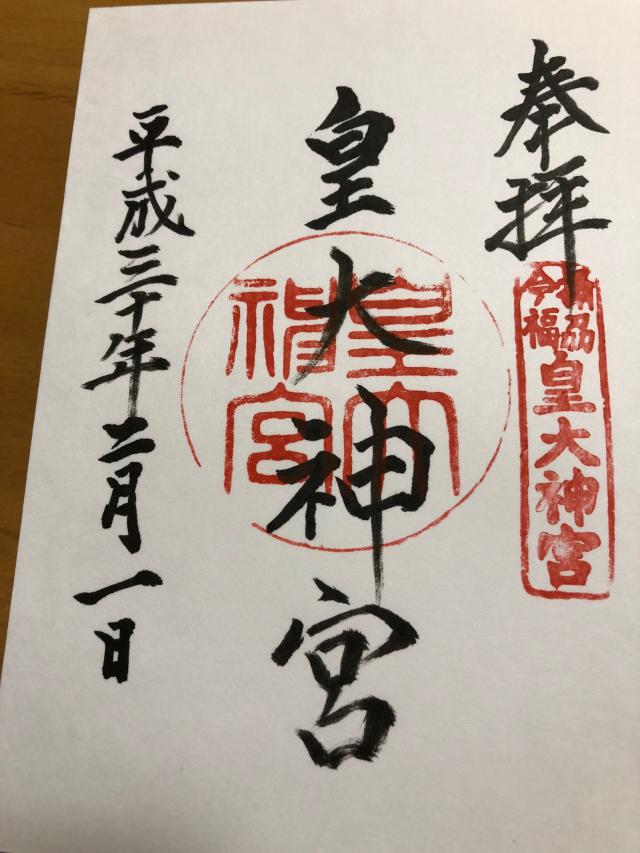 奉拝
今福
皇大神宮
皇大神宮
皇大神宮
平成三十年二月一日